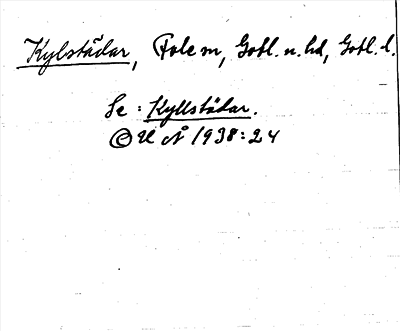 Kylstädar, Fole sn, Gotl. n. hd, Gotl. l.
Se: Kyllstädar.
Ⓒ U Å 1938:24